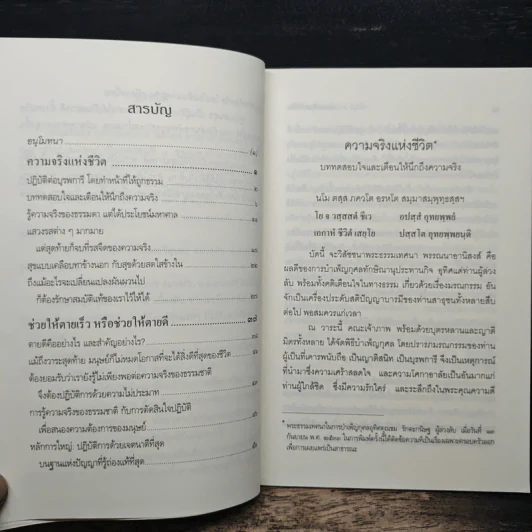 สารบัญ
อนุโมทนา (๑)
ความจริงแห่งชีวิต ๑
ปฏิบัติต่อบุรพการี โดยทำหน้าที่ให้ถูกธรรม
บททดสอบใจและเตือนให้นึกถึงความจริง
รู้ความจริงของธรรมดา แต่ได้ประโยชน์มหาศาล
แสวงรสต่าง ๆ มากมาย
แต่สุดท้ายก็จบที่รสจืดของความจริง
สุขแบบเคลือบทาข้างนอก กับสุขด้วยสดใสข้างใน
ถึงแม้อะไรจะเปลี่ยนแปลงผันผวนไป
ก็ต้องรักษาสมบัติแท้ของเราไว้ให้ได้
ช่วยให้ตายเร็ว หรือช่วยให้ตายดี
ตายดีคืออย่างไร และสำคัญอย่างไร?
แม้ถึงวาระสุดท้าย มนุษย์ก็ไม่หมดโอกาสที่จะได้สิ่งที่ดีที่สุดของชีวิต
ต้องยอมรับว่าเรายังรู้ไม่เพียงพอต่อความจริงของธรรมชาติ
จึงต้องปฏิบัติการด้วยความไม่ประมาท
การรู้ความจริงของธรรมชาติ กับการตัดสินใจปฏิบัติ
เพื่อสนองความต้องการของมนุษย์
หลักการใหญ่: ปฏิบัติการด้วยเจตนาดีที่สุด
บนฐานแห่งปัญญาที่รู้ถ่องแท้ที่สุด
ความจริงแห่งชีวิต*
บททดสอบใจและเตือนให้นึกถึงความจริง
นโม ตสฺส ภควโต อรหโต สมฺมาสมฺพุทฺธสฺส
โย จ วสฺสสตํ ชีเว อปสฺสํ อุทยพฺพยํ
เอกาหํ ชีวิตํ เสยฺโย ปสฺสโต อุทยพฺพยนฺติ
บัดนี้ จะวิสัชนาพระธรรมเทศนา พรรณนาอานิสงส์ คือ
ผลดีของการบำเพ็ญกุศลทักษิณานุประทานกิจ อุทิศแด่ท่านผู้ล่วง
ลับ พร้อมทั้งคติเตือนใจในทางธรรม เกี่ยวด้วยเรื่องมรณกรรม อัน
จักเป็นเครื่องประดับสติปัญญาบารมีของท่านสาธุชนทั้งหลายสืบ
ต่อไป พอสมควรแก่เวลา
ณ วาระนี้ คณะเจ้าภาพ พร้อมด้วยบุตรหลานและญาติ
มิตรทั้งหลาย ได้จัดพิธีบำเพ็ญกุศล โดยปรารภมรณกรรมของท่าน
ผู้เป็นที่เคารพนับถือ เป็นญาติสนิท เป็นบุรพการี ซึ่งเป็นเหตุการณ์
ที่นำมาซึ่งความเศร้าสลดใจ และความโศกาอาลัยเป็นอันมากแก่
ท่านผู้ใกล้ชิด ซึ่งมีความรักใคร่ และระลึกถึงในพระคุณความดี